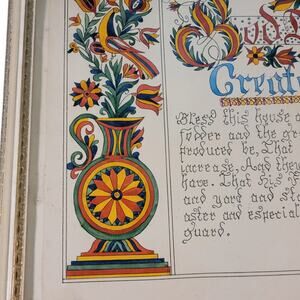 God
Creat
Bless this house a
fodder and the gr
produced be. That
increase. And the
have. That his
and yard and sta
aster and especial
guard.